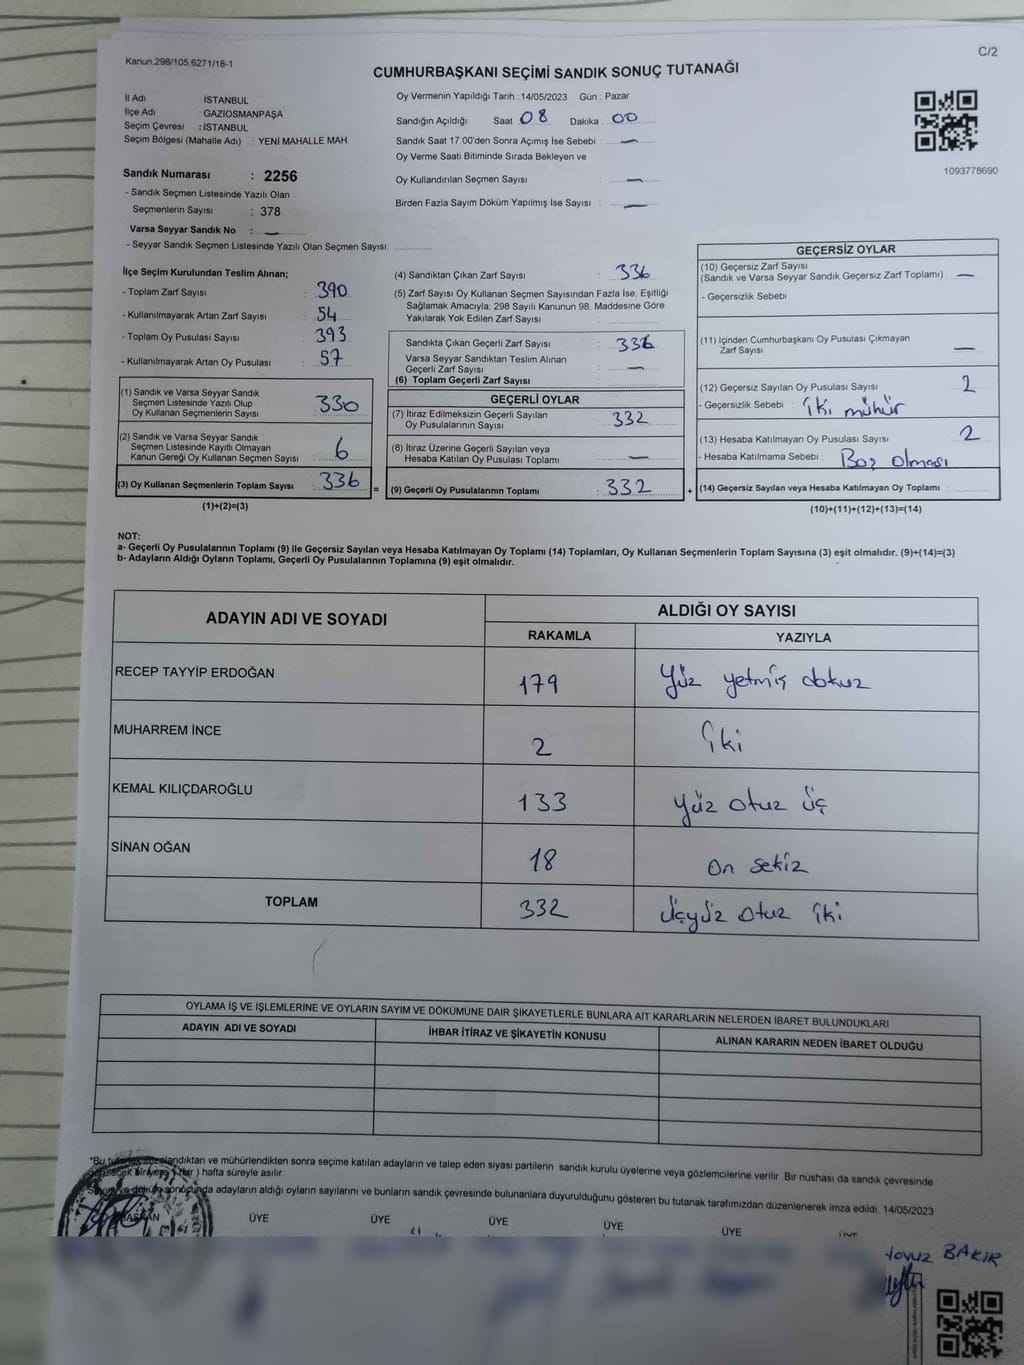 Kanun.298/105,6271/18-1
C/2
CUMHURBAŞKANI SEÇİMİ SANDIK SONUÇ TUTANAĞI
İl Adı : İSTANBUL
İlçe Adı : GAZİOSMANPAŞA
Seçim Çevresi : İSTANBUL
Seçim Bölgesi (Mahalle Adı) : YENİ MAHALLE MAH
Oy Vermenin Yapıldığı Tarih : 14/05/2023 Gün : Pazar
Sandığın Açıldığı Saat 08 Dakika : 00
Sandık Saat 17.00'den Sonra Açımış İse Sebebi : —
Oy Verme Saati Bitiminde Sırada Bekleyen ve
Oy Kullandırılan Seçmen Sayısı : —
Birden Fazla Sayım Döküm Yapılmış İse Sayısı : —
1093778690
Sandık Numarası : 2256
- Sandık Seçmen Listesinde Yazılı Olan
Seçmenlerin Sayısı : 378
Varsa Seyyar Sandık No : —
- Seyyar Sandık Seçmen Listesinde Yazılı Olan Seçmen Sayısı:
İlçe Seçim Kurulundan Teslim Alınan;
- Toplam Zarf Sayısı : 390
- Kullanılmayarak Artan Zarf Sayısı : 54
- Toplam Oy Pusulası Sayısı : 393
- Kullanılmayarak Artan Oy Pusulası : 57
(1) Sandık ve Varsa Seyyar Sandık
Seçmen Listesinde Yazılı Olup
Oy Kullanan Seçmenlerin Sayısı : 330
(2) Sandık ve Varsa Seyyar Sandık
Seçmen Listesinde Kayıtlı Olmayan
Kanun Gereği Oy Kullanan Seçmen Sayısı : 6
(3) Oy Kullanan Seçmenlerin Toplam Sayısı : 336 =
(1)+(2)=(3)
(4) Sandıktan Çıkan Zarf Sayısı : 336
(5) Zarf Sayısı Oy Kullanan Seçmen Sayısından Fazla İse, Eşitliği
Sağlamak Amacıyla, 298 Sayılı Kanunun 98. Maddesine Göre
Yakılarak Yok Edilen Zarf Sayısı :
Sandıkta Çıkan Geçerli Zarf Sayısı : 336
Varsa Seyyar Sandıktan Teslim Alınan
Geçerli Zarf Sayısı : —
(6) Toplam Geçerli Zarf Sayısı :
GEÇERLİ OYLAR
(7) İtiraz Edilmeksizin Geçerli Sayılan
Oy Pusulalarının Sayısı : 332
(8) İtiraz Üzerine Geçerli Sayılan veya
Hesaba Katılan Oy Pusulası Toplamı : —
(9) Geçerli Oy Pusulalarının Toplamı : 332 +
GEÇERSİZ OYLAR
(10) Geçersiz Zarf Sayısı
(Sandık ve Varsa Seyyar Sandık Geçersiz Zarf Toplamı) : —
- Geçersizlik Sebebi
(11) İçinden Cumhurbaşkanı Oy Pusulası Çıkmayan
Zarf Sayısı —
(12) Geçersiz Sayılan Oy Pusulası Sayısı : 2
- Geçersizlik Sebebi : iki mühür
(13) Hesaba Katılmayan Oy Pusulası Sayısı : 2
- Hesaba Katılmama Sebebi : Boş olması
(14) Geçersiz Sayılan veya Hesaba Katılmayan Oy Toplamı :
(10)+(11)+(12)+(13)=(14)
NOT:
a- Geçerli Oy Pusulalarının Toplamı (9) ile Geçersiz Sayılan veya Hesaba Katılmayan Oy Toplamı (14) Toplamları, Oy Kullanan Seçmenlerin Toplam Sayısına (3) eşit olmalıdır. (9)+(14)=(3)
b- Adayların Aldığı Oyların Toplamı, Geçerli Oy Pusulalarının Toplamına (9) eşit olmalıdır.
ADAYIN ADI VE SOYADI
ALDIĞI OY SAYISI
RAKAMLA YAZIYLA
RECEP TAYYİP ERDOĞAN 179 Yüz yetmiş dokuz
MUHARREM İNCE 2 iki
KEMAL KILIÇDAROĞLU 133 yüz otuz üç
SİNAN OĞAN 18 on sekiz
TOPLAM 332 üçyüz otuz iki
OYLAMA İŞ VE İŞLEMLERİNE VE OYLARIN SAYIM VE DÖKÜMÜNE DAİR ŞİKAYETLERLE BUNLARA AİT KARARLARIN NELERDEN İBARET BULUNDUKLARI
ADAYIN ADI VE SOYADI İHBAR İTİRAZ VE ŞİKAYETİN KONUSU ALINAN KARARIN NEDEN İBARET OLDUĞU
*Bu ve mühürlendikten sonra seçime katılan adayların ve talep eden siyasi partilerin sandık kurulu üyelerine veya gözlemcilerine verilir. Bir nüshası da sandık çevresinde
(bir) hafta süreyle asılır.
sonucunda adayların aldığı oyların sayılarını ve bunların sandık çevresinde bulunanlara duyurulduğunu gösteren bu tutanak tarafımızdan düzenlenerek imza edildi. 14/05/2023
BAŞKAN ÜYE ÜYE ÜYE ÜYE ÜYE
BAKIR